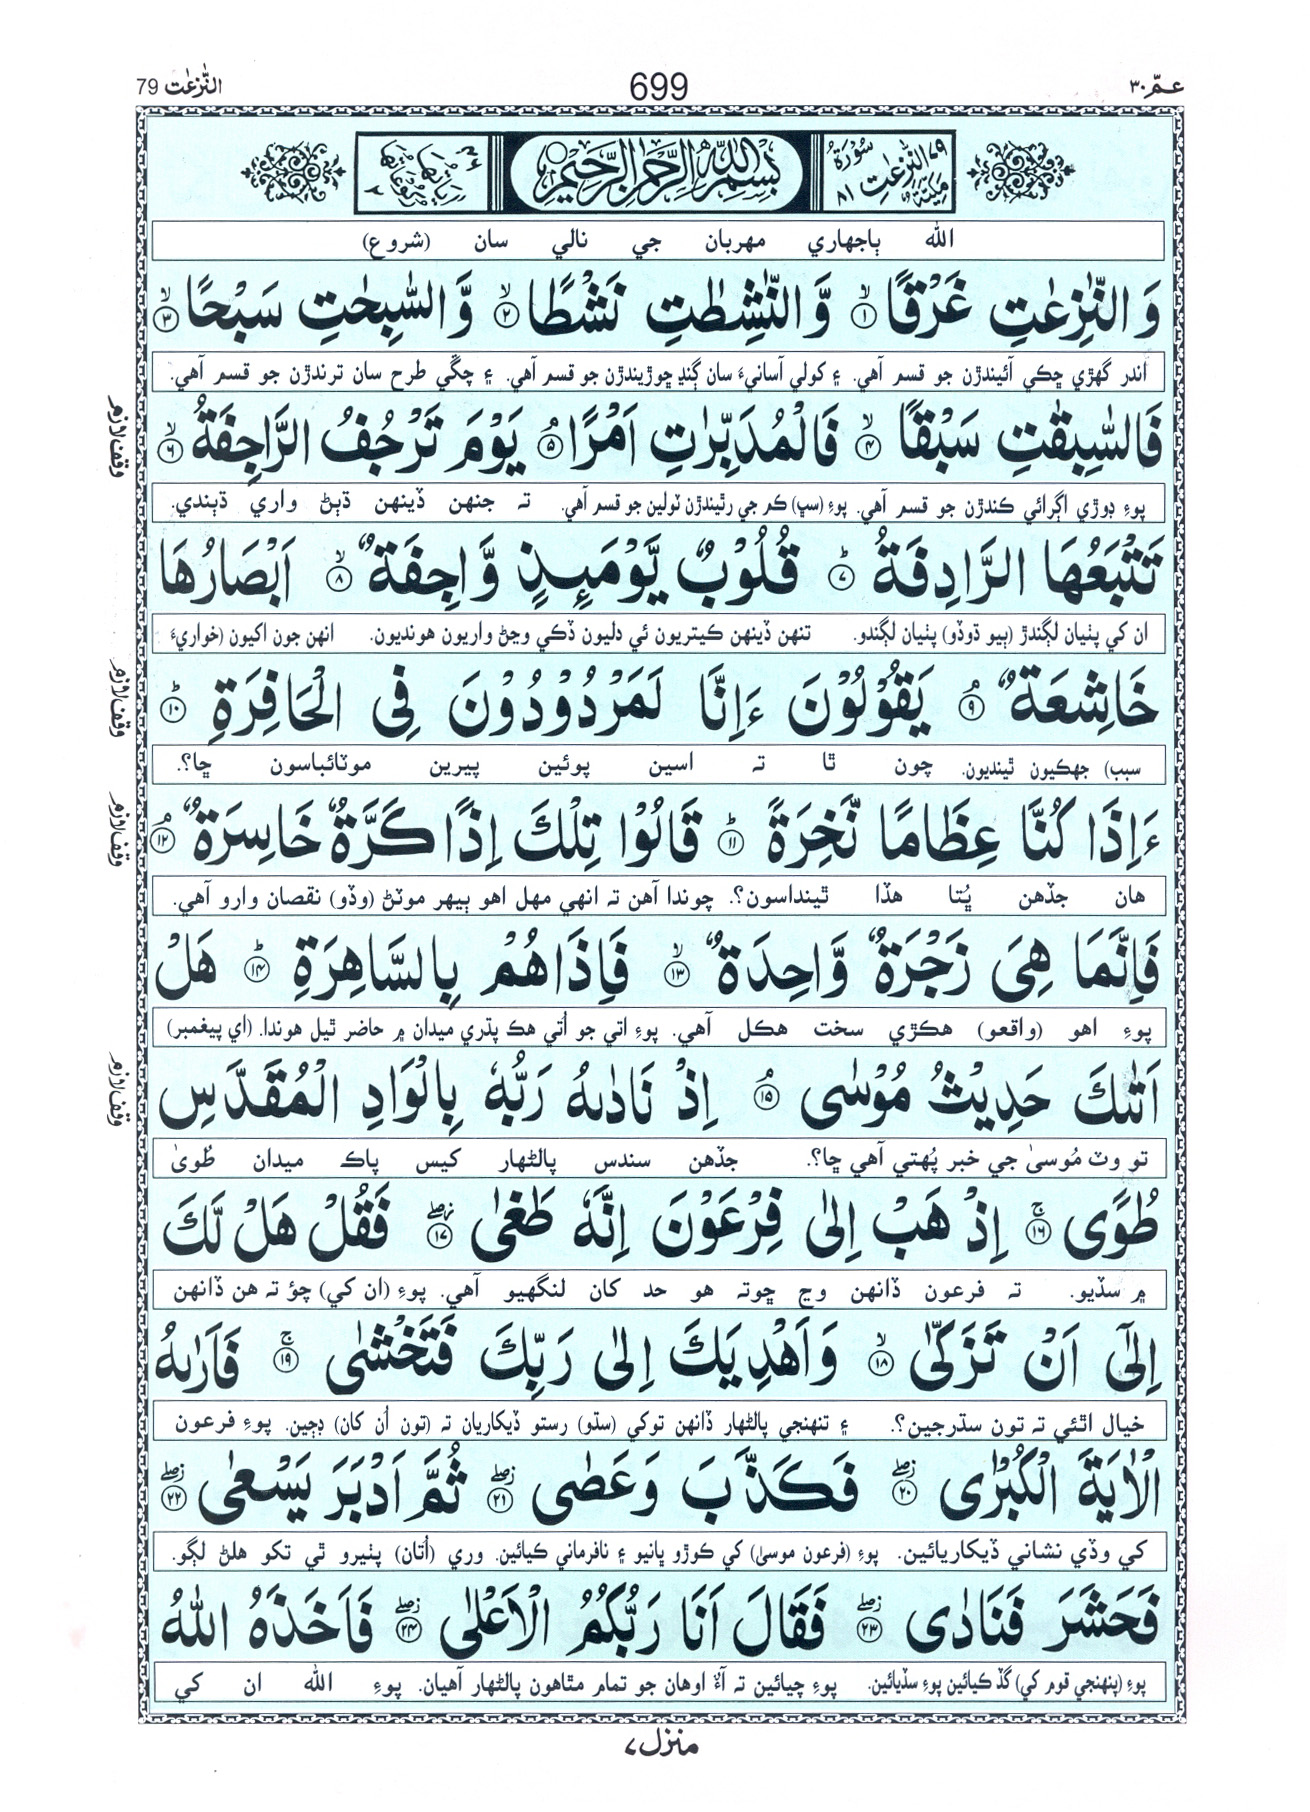 عمّ ٣٠
699
النّٰزعٰت 79
٧٩ سُوْرَةُ النّٰزِعٰتِ مَكِّيَّةٌ ٨١
بِسْمِ اللّٰهِ الرَّحْمٰنِ الرَّحِيْمِ
اٰيَاتُهَا ٤٦ رُكُوْعَاتُهَا ٢
الله ٻاجهاري مهربان جي نالي سان (شروع)
وَالنّٰزِعٰتِ غَرْقًا ۙ﴿١﴾ وَّالنّٰشِطٰتِ نَشْطًا ۙ﴿٢﴾ وَّالسّٰبِحٰتِ سَبْحًا ۙ﴿٣﴾
اندر گهڙي ڇڪي آڻيندڙن جو قسم آهي. ۽ کولي آسانيءَ سان ڳنڍ ڇوڙيندڙن جو قسم آهي. ۽ چڱي طرح سان ترندڙن جو قسم آهي.
فَالسّٰبِقٰتِ سَبْقًا ۙ﴿٤﴾ فَالْمُدَبِّرٰتِ اَمْرًا ۘ﴿٥﴾ يَوْمَ تَرْجُفُ الرَّاجِفَةُ ۙ﴿٦﴾
وقف لازم
پوءِ ڊوڙي اڳرائي ڪندڙن جو قسم آهي. پوءِ (سڀ) ڪم جي رٿيندڙن ٽولين جو قسم آهي. ته جنهن ڏينهن ڌٻڻ واري ڌٻندي.
تَتْبَعُهَا الرَّادِفَةُ ؕ﴿٧﴾ قُلُوْبٌ يَّوْمَىِٕذٍ وَّاجِفَةٌ ۙ﴿٨﴾ اَبْصَارُهَا
ان کي پٺيان لڳندڙ (ٻيو ڌوڏو) پٺيان لڳندو. تنهن ڏينهن ڪيتريون ئي دليون ڏڪي وڃڻ واريون هونديون. انهن جون اکيون (خواريءَ
خَاشِعَةٌ ۘ﴿٩﴾ يَقُوْلُوْنَ ءَاِنَّا لَمَرْدُوْدُوْنَ فِى الْحَافِرَةِ ؕ﴿١٠﴾
وقف لازم
سبب) جهڪيون ٿينديون. چون ٿا ته اسين پوئين پيرين موٽائباسون ڇا؟.
ءَاِذَا كُنَّا عِظَامًا نَّخِرَةً ؕ﴿١١﴾ قَالُوْا تِلْكَ اِذًا كَرَّةٌ خَاسِرَةٌ ۘ﴿١٢﴾
وقف لازم
هان جڏهن ڀُتا هڏا ٿينداسون؟. چوندا آهن ته انهي مهل اهو ٻيهر موٽڻ (وڏو) نقصان وارو آهي.
فَاِنَّمَا هِىَ زَجْرَةٌ وَّاحِدَةٌ ۙ﴿١٣﴾ فَاِذَا هُمْ بِالسَّاهِرَةِ ؕ﴿١٤﴾ هَلْ
پوءِ اهو (واقعو) هڪڙي سخت هڪل آهي. پوءِ اتي جو اُتي هڪ پڌري ميدان ۾ حاضر ٿيل هوندا. (اي پيغمبر)
اَتٰىكَ حَدِيْثُ مُوْسٰى ۘ﴿١٥﴾ اِذْ نَادٰىهُ رَبُّهٗ بِالْوَادِ الْمُقَدَّسِ
وقف لازم
تو وٽ مُوسىٰ جي خبر پُهتي آهي ڇا؟. جڏهن سندس پالڻهار کيس پاڪ ميدان طُوىٰ
طُوًى ۚ﴿١٦﴾ اِذْهَبْ اِلٰى فِرْعَوْنَ اِنَّهٗ طَغٰى ۖ﴿١٧﴾ فَقُلْ هَلْ لَّكَ
۾ سڏيو. ته فرعون ڏانهن وڃ ڇوته هو حد کان لنگهيو آهي. پوءِ (ان کي) چؤ ته هن ڏانهن
اِلٰٓى اَنْ تَزَكّٰى ۙ﴿١٨﴾ وَاَهْدِيَكَ اِلٰى رَبِّكَ فَتَخْشٰى ۚ﴿١٩﴾ فَاَرٰىهُ
خيال اٿئي ته تون سڌرجين؟. ۽ تنهنجي پالڻهار ڏانهن توکي (سڌو) رستو ڏيکاريان ته (تون اُن کان) ڊڄين. پوءِ فرعون
الْاٰيَةَ الْكُبْرٰى ۖ﴿٢٠﴾ فَكَذَّبَ وَعَصٰى ۖ﴿٢١﴾ ثُمَّ اَدْبَرَ يَسْعٰى ۖ﴿٢٢﴾
کي وڏي نشاني ڏيکاريائين. پوءِ (فرعون موسىٰ) کي ڪوڙو ڀانيو ۽ نافرماني ڪيائين. وري (اُتان) پٺيرو ٿي تکو هلڻ لڳو.
فَحَشَرَ فَنَادٰى ۖ﴿٢٣﴾ فَقَالَ اَنَا رَبُّكُمُ الْاَعْلٰى ۖ﴿٢٤﴾ فَاَخَذَهُ اللّٰهُ
پوءِ (پنهنجي قوم کي) گڏ ڪيائين پوءِ سڏيائين. پوءِ چيائين ته آءٌ اوهان جو تمام مٿاهون پالڻهار آهيان. پوءِ الله ان کي
منزل ٧